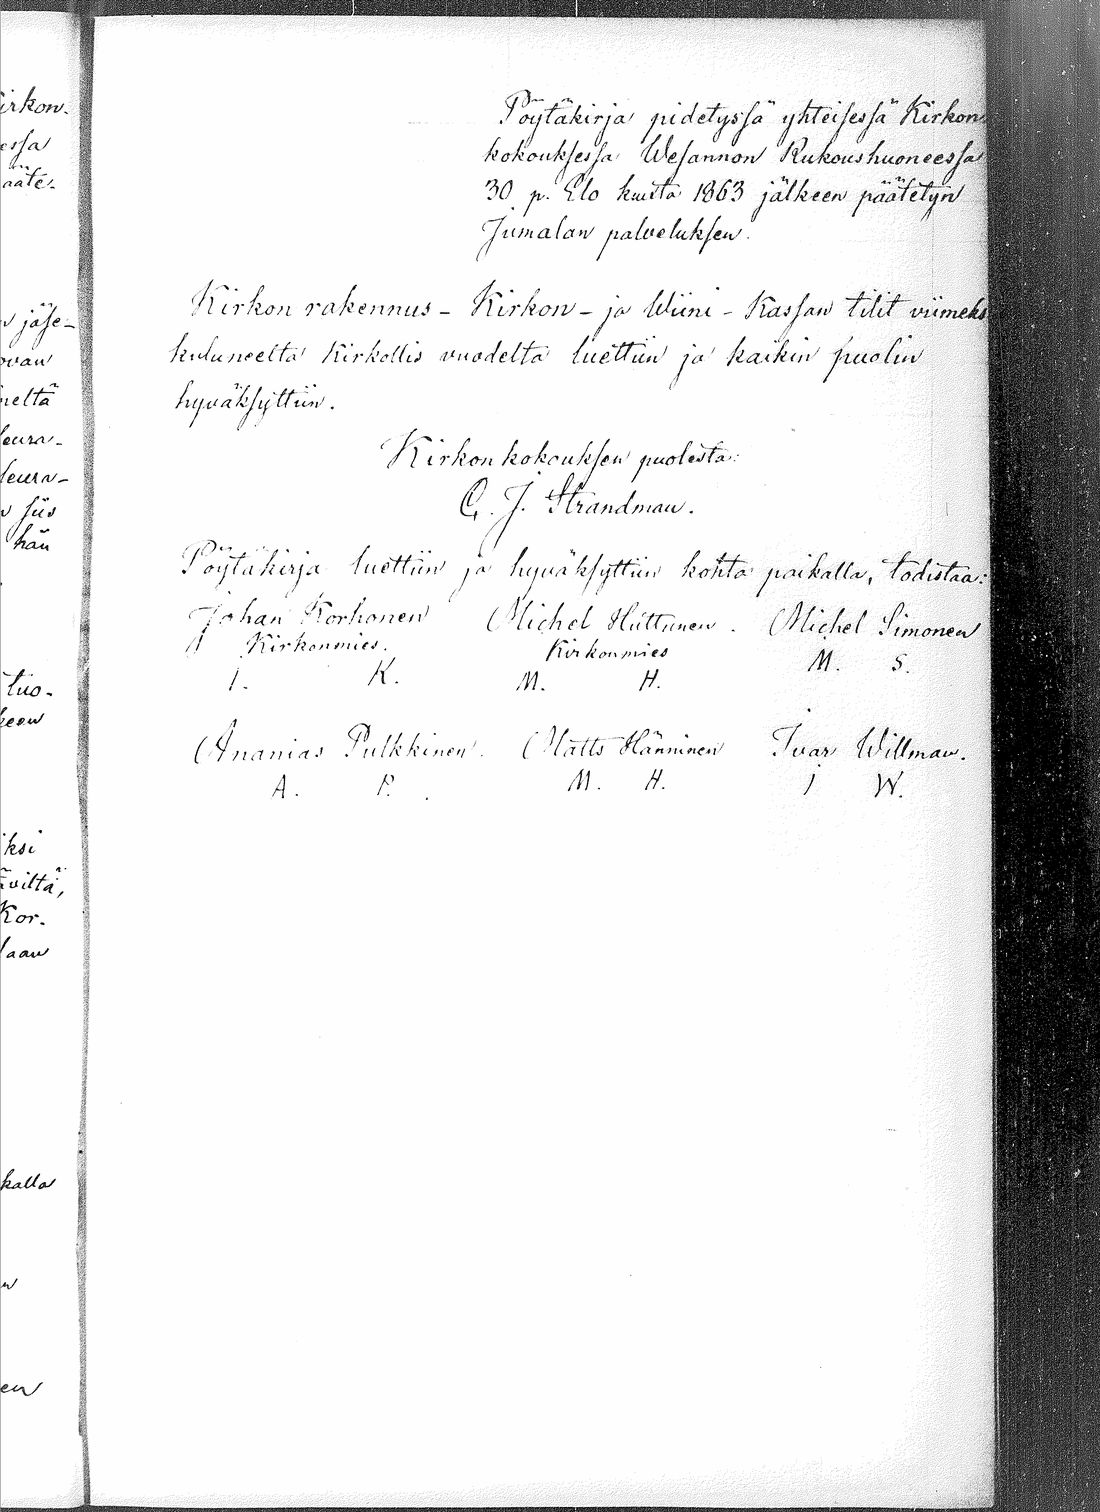 Pöytäkirja pidetyssä yhteisessä Kirkon-
kokouksessa Wesannon Rukoushuoneessa
30 p. Elo kuuta 1863 jälkeen päätetyn
Jumalan palveluksen.
Kirkon rakennus - Kirkon - ja Wiini - Kassan tilit viimeks
kuluneelta Kirkollis vuodelta luettiin ja kaikin puolin
hyväksyttiin.
Kirkonkokouksen puolesta:
C. J. Strandman.
Pöytäkirja luettiin ja hyväksyttiin kohta paikalla, todistaa:
Johan Korhonen Michel Hiittunen. Michel Simonen
Kirkonmies. Kirkonmies
I. K. M. H. M. S.
Ananias Pulkkinen. Matts Hänninen Ivar Willman.
A. P. M. H. I W.
irkon-
essa
ääte-
n jäse-
ovan
neltä
seura-
seura-
n siis
hän
tuo-
keen
iksi
viltä,
Kor-
laan
kalla
n
en